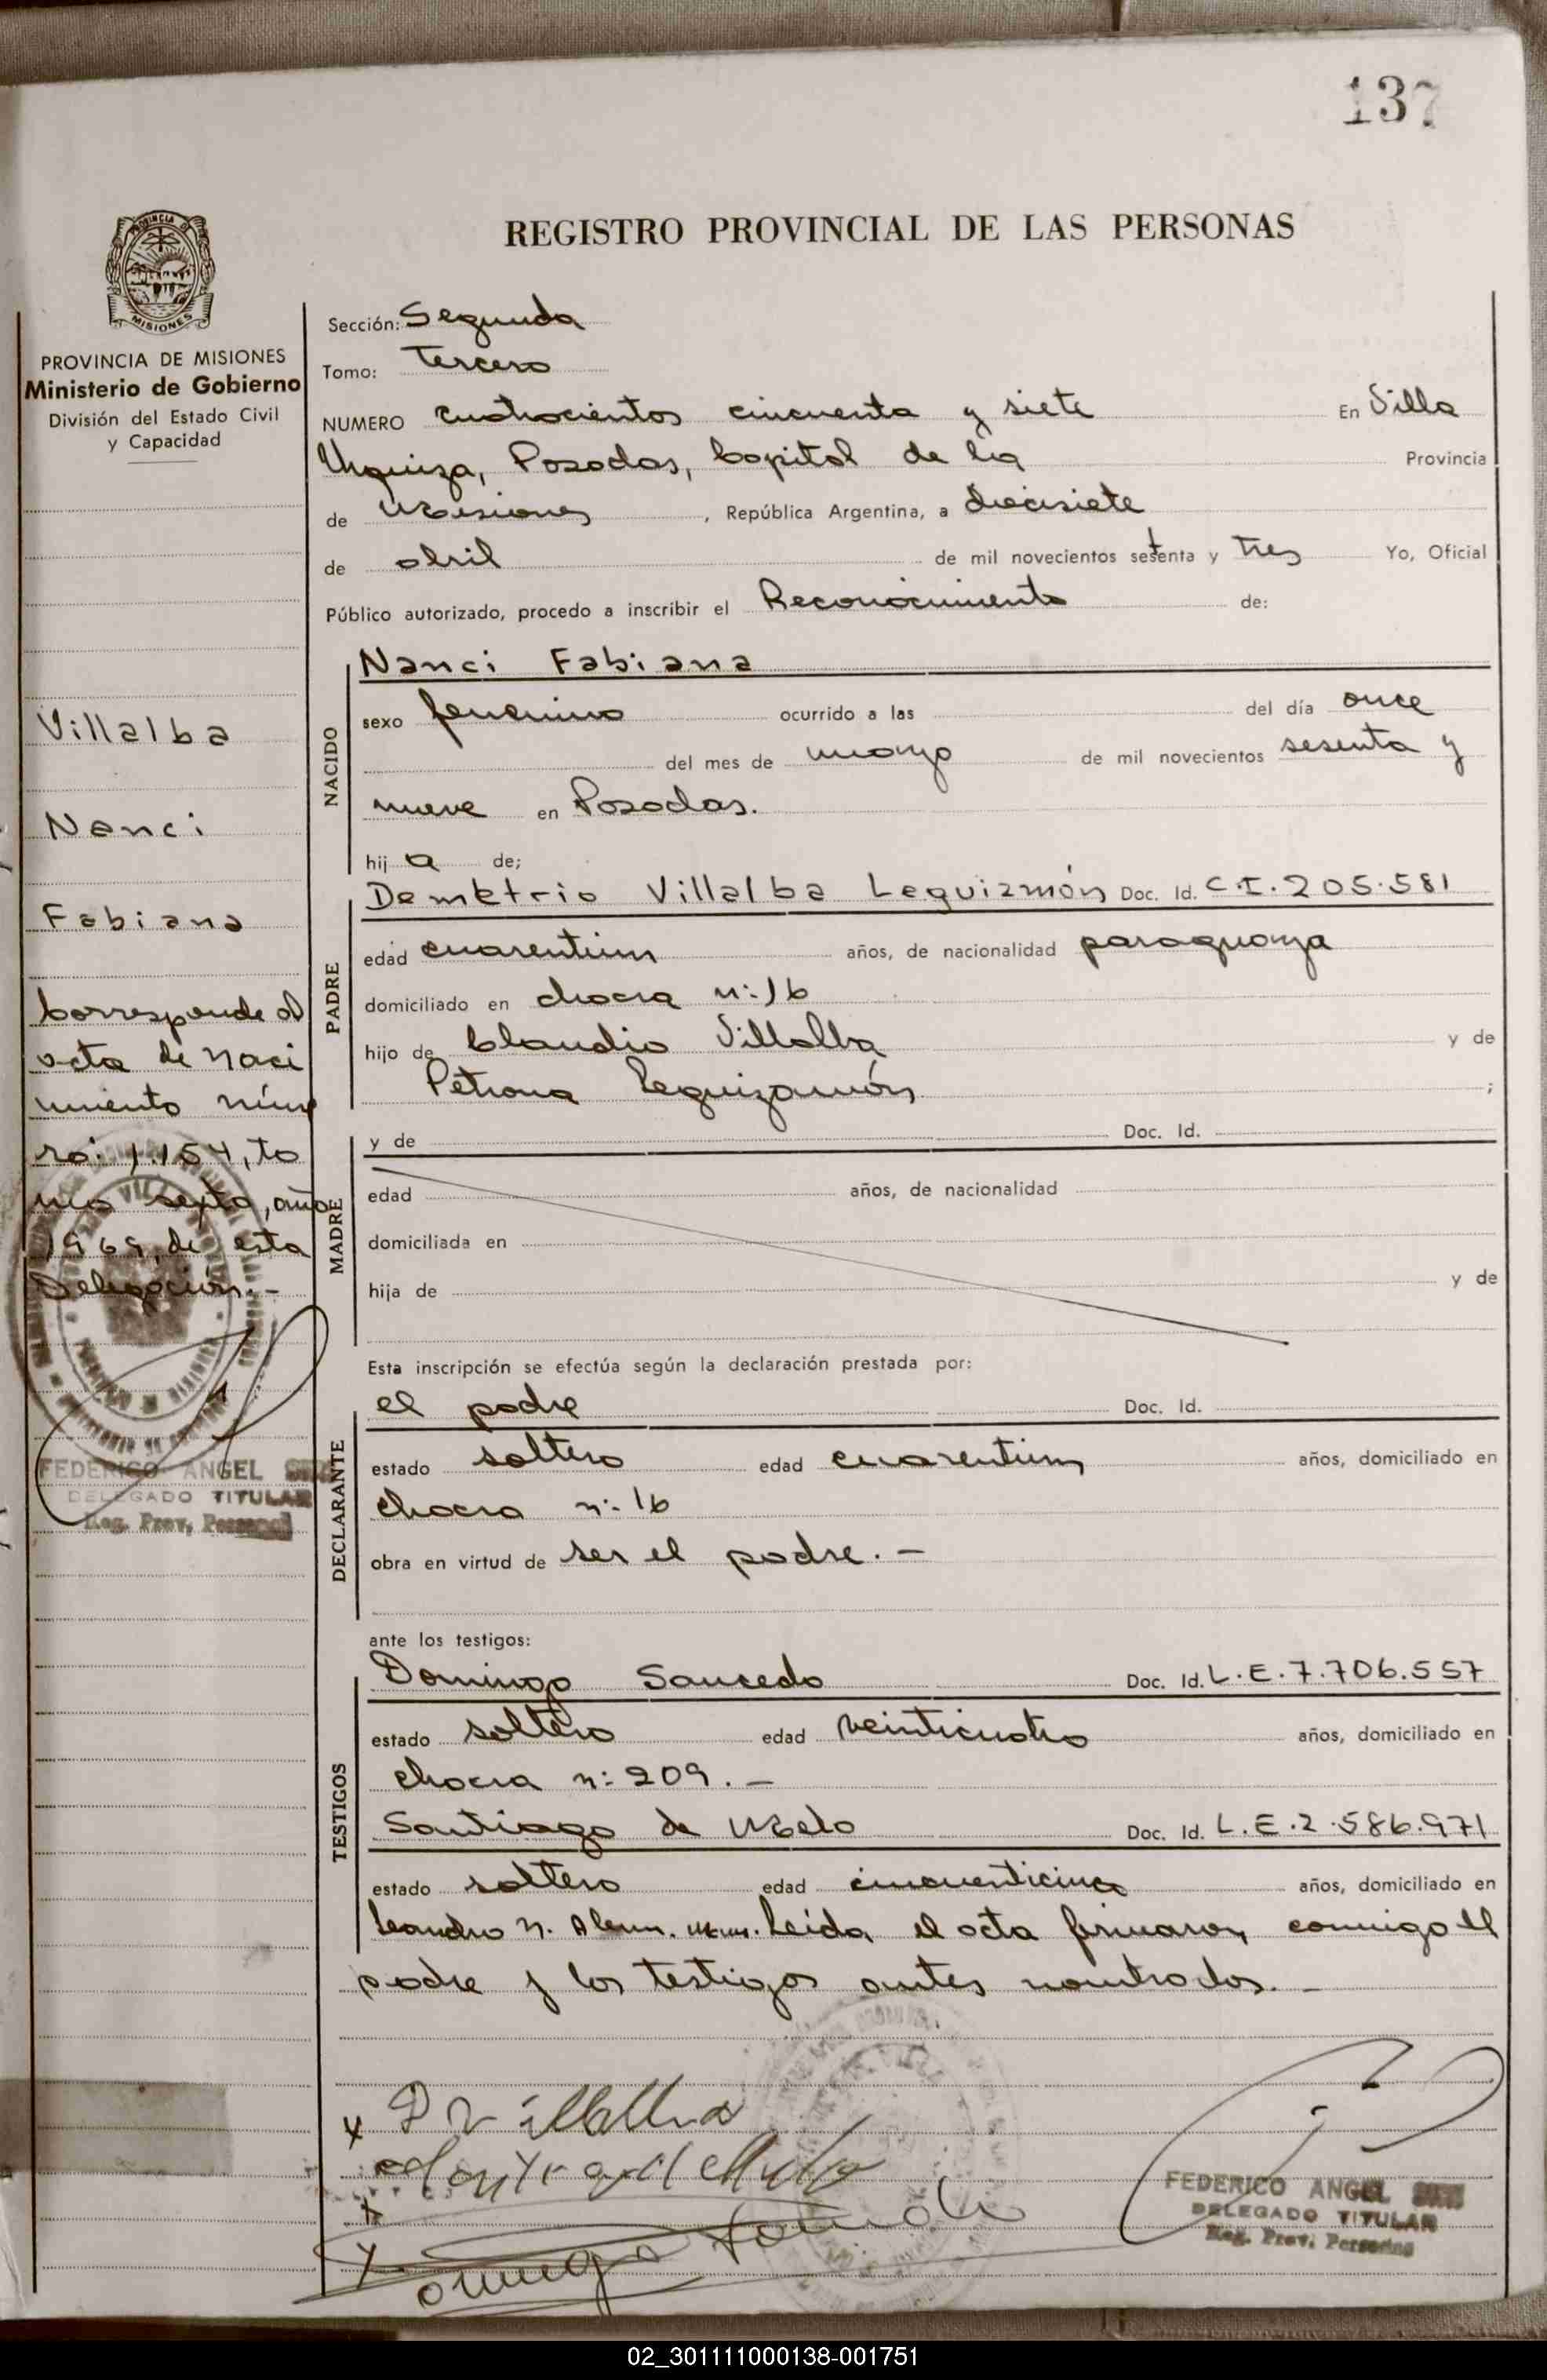 137
REGISTRO PROVINCIAL DE LAS PERSONAS
PROVINCIA
MISIONES
PROVINCIA DE MISIONES
Ministerio de Gobierno
División del Estado Civil
y Capacidad
Villalba
Nanci
Fabiana
Corresponde al
acta de naci
miento núme
ro: 1.154, to
mo sexto, año
1969, de esta
Delegación.-
FEDERICO ANGEL
DELEGADO TITULAR
Reg. Prov. Personas
Sección: Segunda
Tomo: Tercero
NUMERO cuatrocientos cincuenta y siete En Villa
Urquiza, Posadas, Capital de la Provincia
de Misiones, República Argentina, a diecisiete
de abril de mil novecientos setenta y tres Yo, Oficial
Público autorizado, procedo a inscribir el Reconocimiento de:
NACIDO
Nanci Fabiana
sexo femenino ocurrido a las del día once
del mes de marzo de mil novecientos sesenta y
nueve en Posadas.
hij a de;
PADRE
Demetrio Villalba Leguizmón Doc. Id. C.I. 205.581
edad cuarentiun años, de nacionalidad paraguaya
domiciliado en chacra n: 16
hijo de Claudio Villalba y de
Petrona Leguizamón ;
MADRE
y de Doc. Id.
edad años, de nacionalidad
domiciliada en
hija de y de
Esta inscripción se efectúa según la declaración prestada por:
DECLARANTE
el padre Doc. Id.
estado soltero edad cuarentiun años, domiciliado en
chacra n: 16
obra en virtud de ser el padre. -
ante los testigos:
TESTIGOS
Domingo Saucedo Doc. Id. L.E. 7.706.557
estado soltero edad veinticuatro años, domiciliado en
chacra n: 209. -
Santiago de Melo Doc. Id. L.E. 2.586.971
estado soltero edad cincuenticinco años, domiciliado en
Leandro N. Alem. Leida el acta firmaron conmigo el
padre y los testigos antes nombrados. -
x D Villalba
x
x
FEDERICO ANGEL
DELEGADO TITULAR
Reg. Prov. Personas
02_301111000138-001751